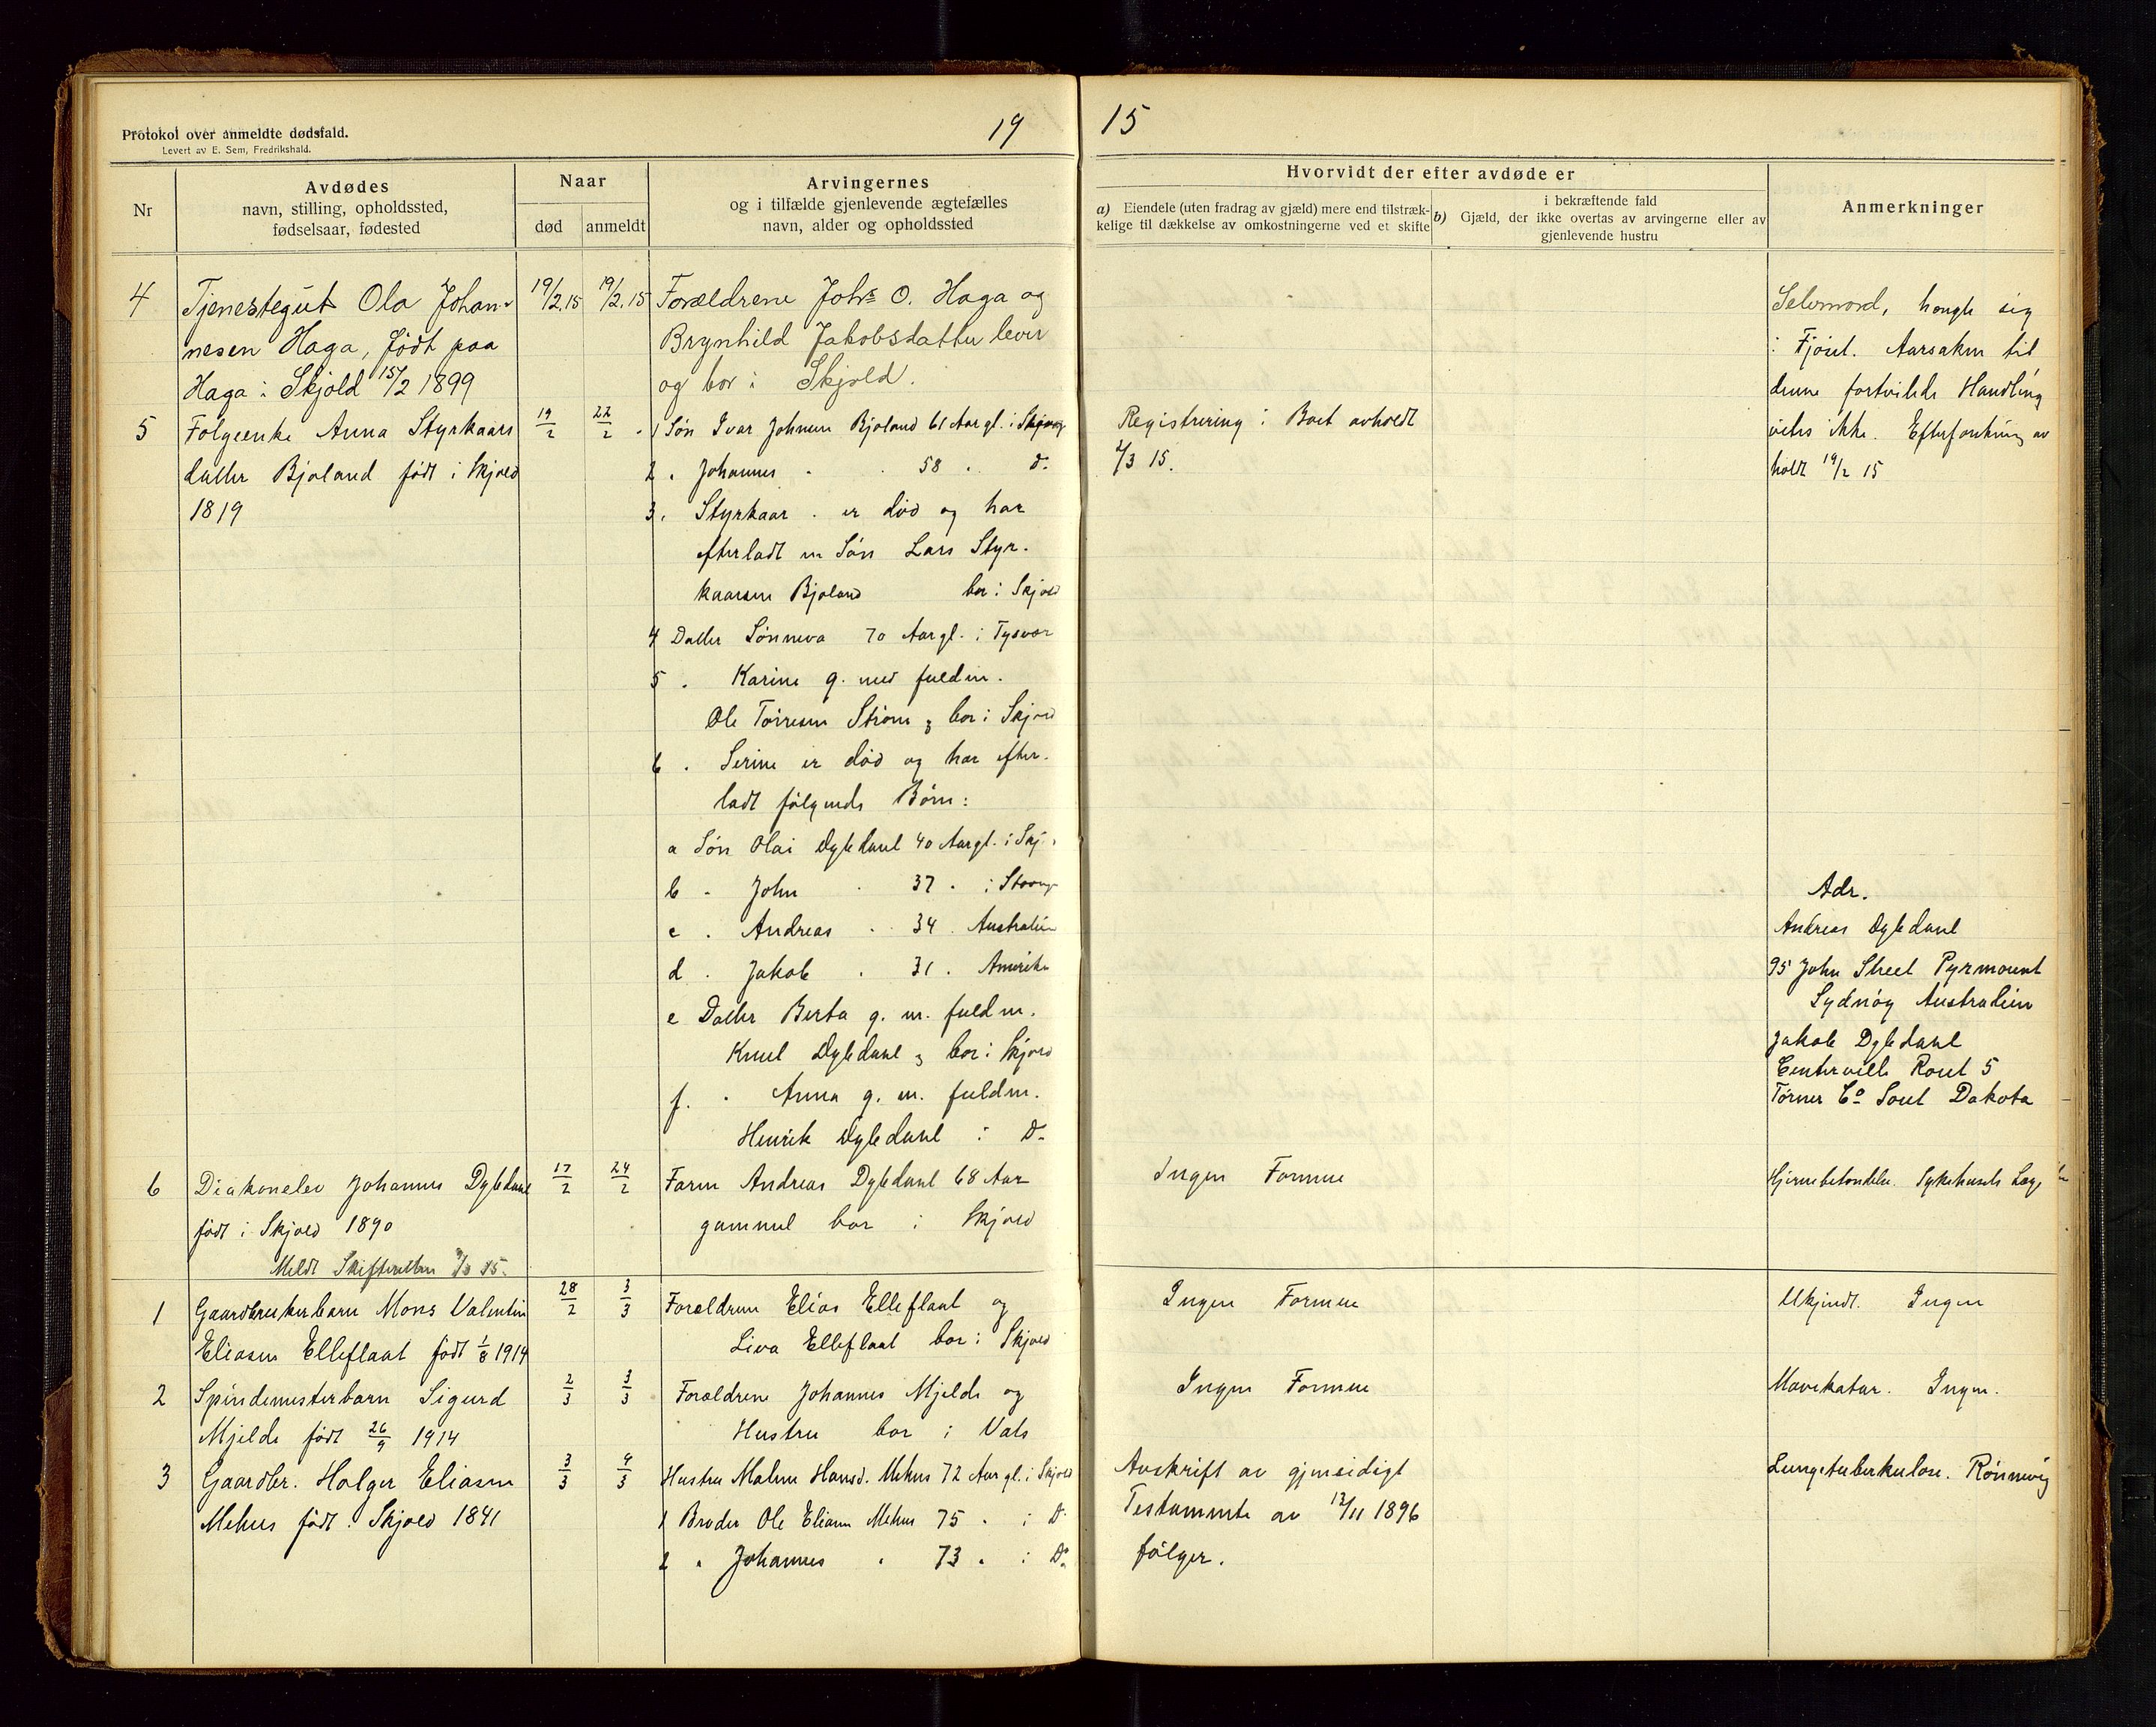 Protokol over anmeldte dødsfald.
Levert av E. Sem, Fredrikshald.
19
15
Nr
Avdødes
navn, stilling, opholdssted,
fødselsaar, fødested
Naar
død
anmeldt
Arvingernes
og i tilfælde gjenlevende ægtefælles
navn, alder og opholdssted
Hvorvidt der efter avdøde er
a) Eiendele (uten fradrag av gjæld) mere end tilstræk-
kelige til dækkelse av omkostningerne ved et skifte
i bekræftende fald
b) Gjæld, der ikke overtas av arvingerne eller av
gjenlevende hustru
Anmerkninger
4
Tjenestegut Ola Johan-
nesen Haga, født paa
Haga i Skjold 15/2 1899
19/2.15
19/2.15
Forældrene Johs. O. Haga og
Brynhild Jakobsdatter lever
og bor i Skjold.
Selvmord, hengte sig
i Fjøset. Aarsaken til
denne fortvilede Handling
vites ikke. Efterforskning av
holdt 19/2 15
5
Følgeenke Anna Styrkaars
datter Bjoland født i Skjold
1819
19/2
22/2
1 Søn Ivar Johnsen Bjoland 61 Aar gl. i
2 " Johannes " " 58 " Do.
3 " Styrkaar " er død og har
efterladt en Søn Lars Styr-
kaarsen Bjoland bor i Skjold
4 Datter Sønneva 70 Aar gl. i Tysvær
5 " Karine g. med fuldm.
Ole Tørresen Strøm, bor i Skjold
6 " Serine er død og har efter-
ladt følgende Børn:
a Søn Olai Dybdahl 40 Aar gl. i Skj.
b " John " 37 " i Stavang
c " Andreas " 34 " Australien
d " Jakob " 31 " Amerika
e Datter Berta g. m. fuldm.
Knut Dybdahl, bor i Skjold
f. " Anna g. m. fuldm.
Henrik Dybdahl i Do.
Registrering i Boet avholdt
2/3 15.
Adr.
Andreas Dybdahl
95 John Street Pyrmount
Sydnøy Australien
Jakob Dybdahl
Centerville Rout 5
Tørner Co. Sout Dakota
6
Diakonelev Johannes Dybdahl
født i Skjold 1890
Meldt Skifteretten
17/2
24/2
Faren Andreas Dybdahl 68 Aar
gammel bor i Skjold
Ingen Formue
Hjernebetændelse. Sykehusets Læge
1
Gaardbrukerbarn Mons Valentin
Eliasen Elleflaat født 1/8 1914
28/2
3/3
Forældrene Elias Elleflaat og
Liva Elleflaat bor i Skjold
Ingen Formue
Ukjendt. Ingen
2
Spindemesterbarn Sigurd
Mjelde født 26/9 1914
2/3
3/3
Forældrene Johannes Mjelde og
Hustru bor i Vats
Ingen Formue
Mavekatar. Ingen.
3
Gaardbr. Holger Eliasen
Mehus født i Skjold 1841
3/3
4/3
Hustru Malene Hansd. Mehus 72 Aar gl. i Skjold
1 Broder Ole Eliasen Mehus 75 " i Do.
2 " Johannes " 73 " i Do.
Avskrift av gjensidigt
Testamente av 12/11 1896
følger.
Lungetuberkulose. Rønnevig